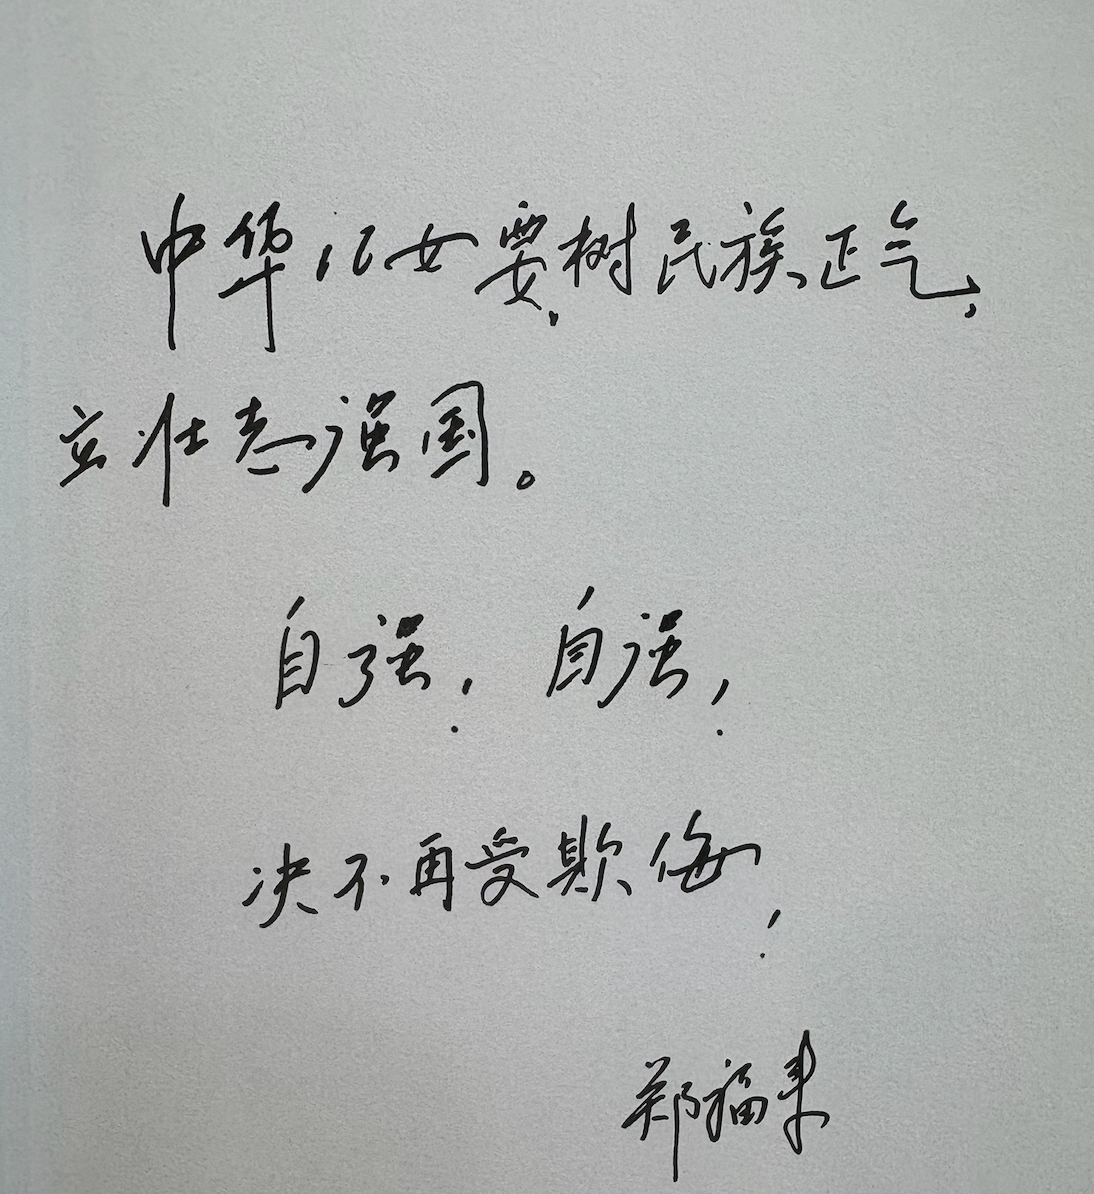 中华儿女要,树民族正气,
立壮志强国。
自强! 自强!
决不再受欺侮!
郑福来